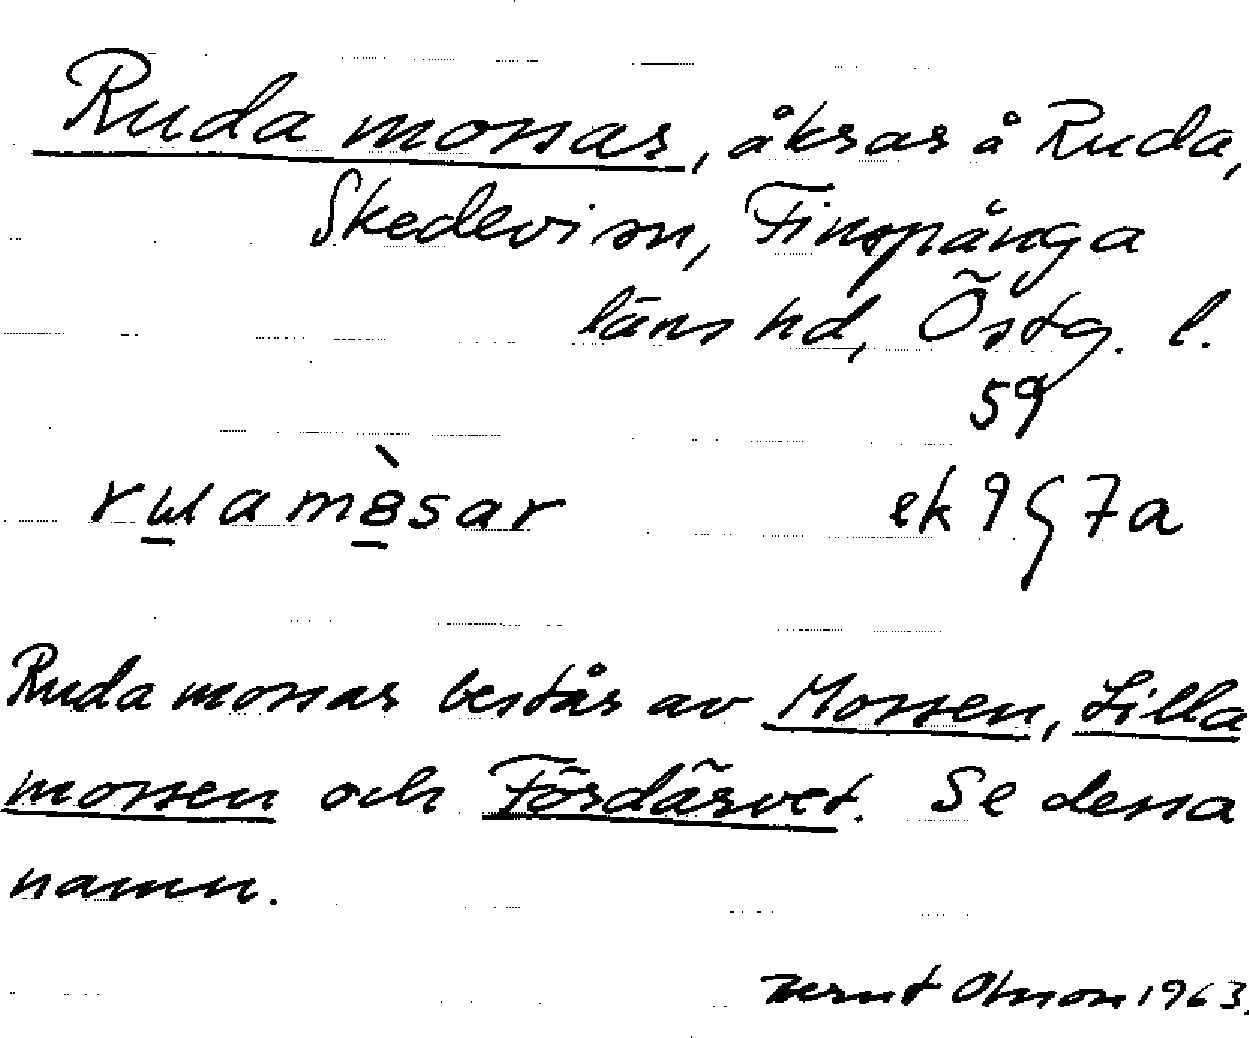 Ruda mossar, åkrar å Ruda,
Skedevi sn, Finspånga
läns hd, Östg. l.
59
ek 9 G 7 a
Ruda mossar består av Mossen, Lilla
mossen och Fördärvet. Se dessa
namn.
Bernt Olsson 1963.